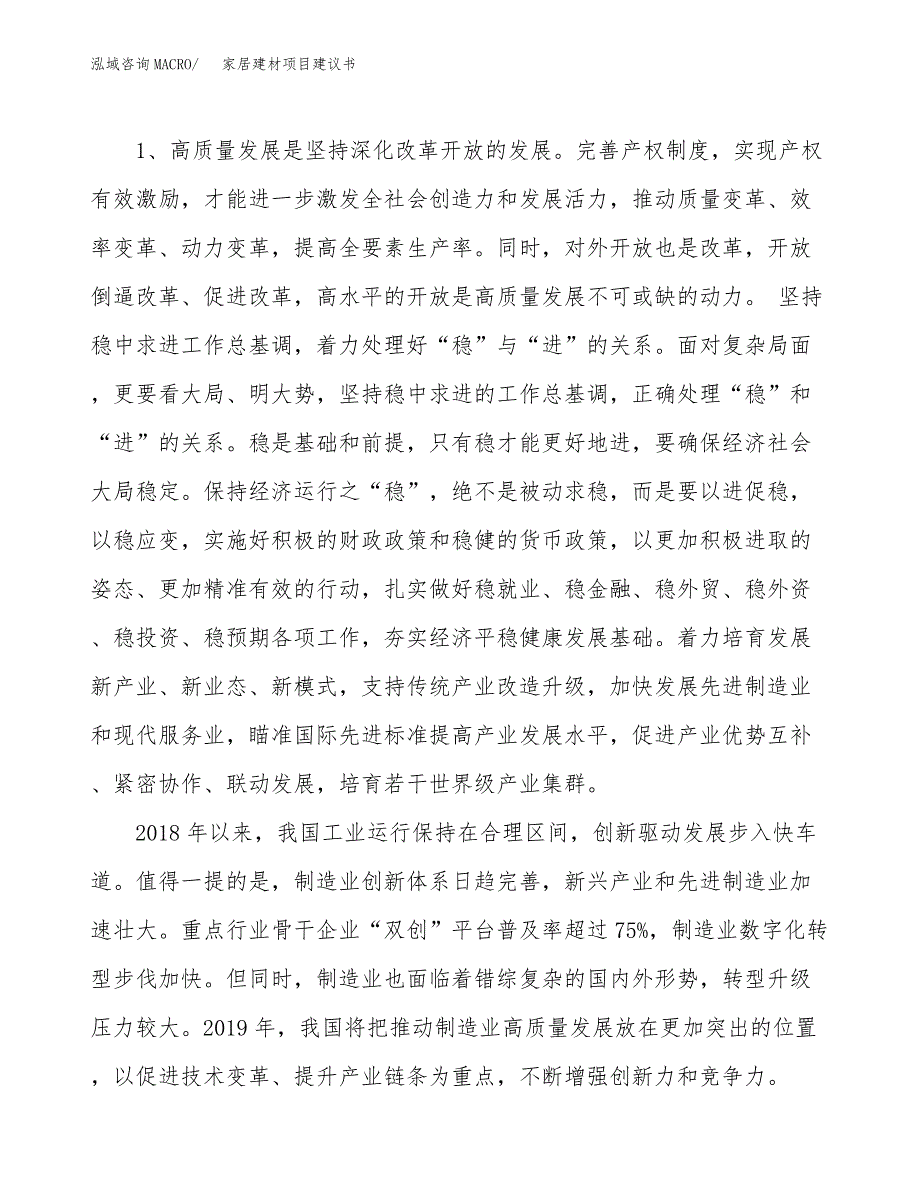 泓域咨询MACRO/ 家居建材项目建议书
1、高质量发展是坚持深化改革开放的发展。完善产权制度，实现产权
有效激励，才能进一步激发全社会创造力和发展活力，推动质量变革、效
率变革、动力变革，提高全要素生产率。同时，对外开放也是改革，开放
倒逼改革、促进改革，高水平的开放是高质量发展不可或缺的动力。 坚持
稳中求进工作总基调，着力处理好“稳”与“进”的关系。面对复杂局面
，更要看大局、明大势，坚持稳中求进的工作总基调，正确处理“稳”和
“进”的关系。稳是基础和前提，只有稳才能更好地进，要确保经济社会
大局稳定。保持经济运行之“稳”，绝不是被动求稳，而是要以进促稳，
以稳应变，实施好积极的财政政策和稳健的货币政策，以更加积极进取的
姿态、更加精准有效的行动，扎实做好稳就业、稳金融、稳外贸、稳外资
、稳投资、稳预期各项工作，夯实经济平稳健康发展基础。着力培育发展
新产业、新业态、新模式，支持传统产业改造升级，加快发展先进制造业
和现代服务业，瞄准国际先进标准提高产业发展水平，促进产业优势互补
、紧密协作、联动发展，培育若干世界级产业集群。
2018 年以来，我国工业运行保持在合理区间，创新驱动发展步入快车
道。值得一提的是，制造业创新体系日趋完善，新兴产业和先进制造业加
速壮大。重点行业骨干企业“双创”平台普及率超过 75%，制造业数字化转
型步伐加快。但同时，制造业也面临着错综复杂的国内外形势，转型升级
压力较大。2019 年，我国将把推动制造业高质量发展放在更加突出的位置
，以促进技术变革、提升产业链条为重点，不断增强创新力和竞争力。